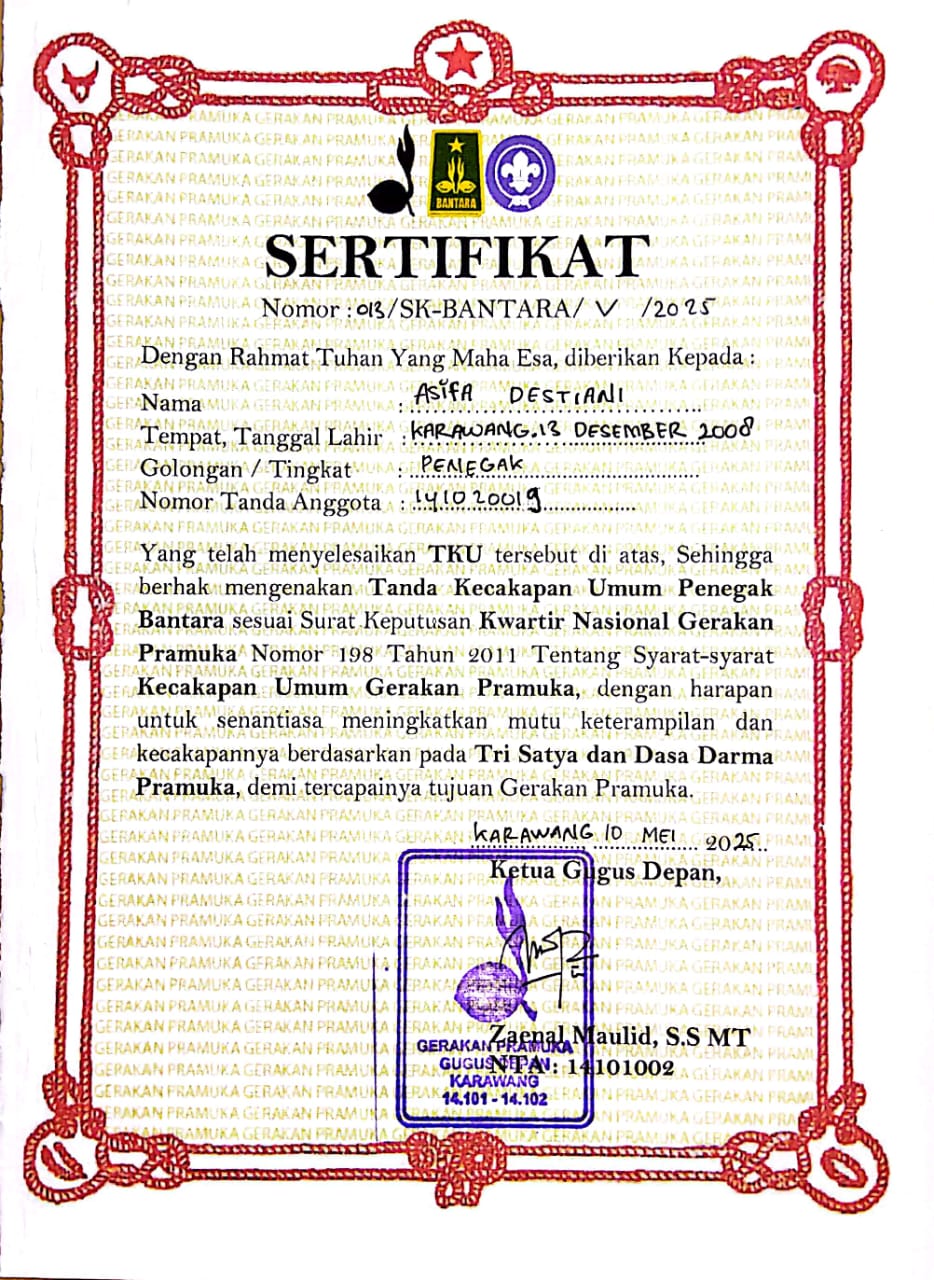 BANTARA
SERTIFIKAT
Nomor : 013/SK-BANTARA/ V /2025
Dengan Rahmat Tuhan Yang Maha Esa, diberikan Kepada :
Nama : ASIFA DESTIANI
Tempat, Tanggal Lahir : KARAWANG. 13 DESEMBER 2008
Golongan / Tingkat : PENEGAK
Nomor Tanda Anggota : 141020019
Yang telah menyelesaikan TKU tersebut di atas, Sehingga
berhak mengenakan Tanda Kecakapan Umum Penegak
Bantara sesuai Surat Keputusan Kwartir Nasional Gerakan
Pramuka Nomor 198 Tahun 2011 Tentang Syarat-syarat
Kecakapan Umum Gerakan Pramuka, dengan harapan
untuk senantiasa meningkatkan mutu keterampilan dan
kecakapannya berdasarkan pada Tri Satya dan Dasa Darma
Pramuka, demi tercapainya tujuan Gerakan Pramuka.
KARAWANG 10 MEI 2025
Ketua Gugus Depan,
Zaenal Maulid, S.S MT
NTA : 14101002
GERAKAN PRAMUKA
GUGUS DEPAN
KARAWANG
14.101 - 14.102